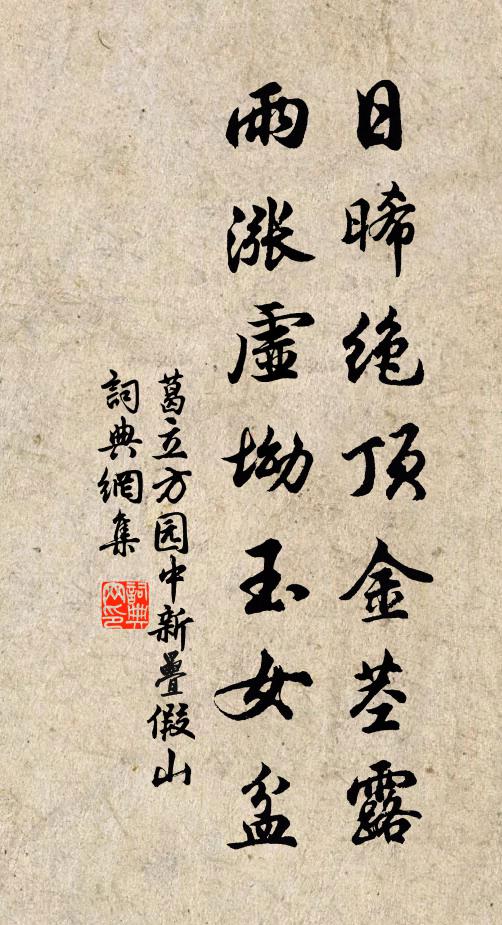 日晞绝顶金茎露
雨漲虛坳玉女盆
葛立方园中新疊假山
詞典網集
詞典網印